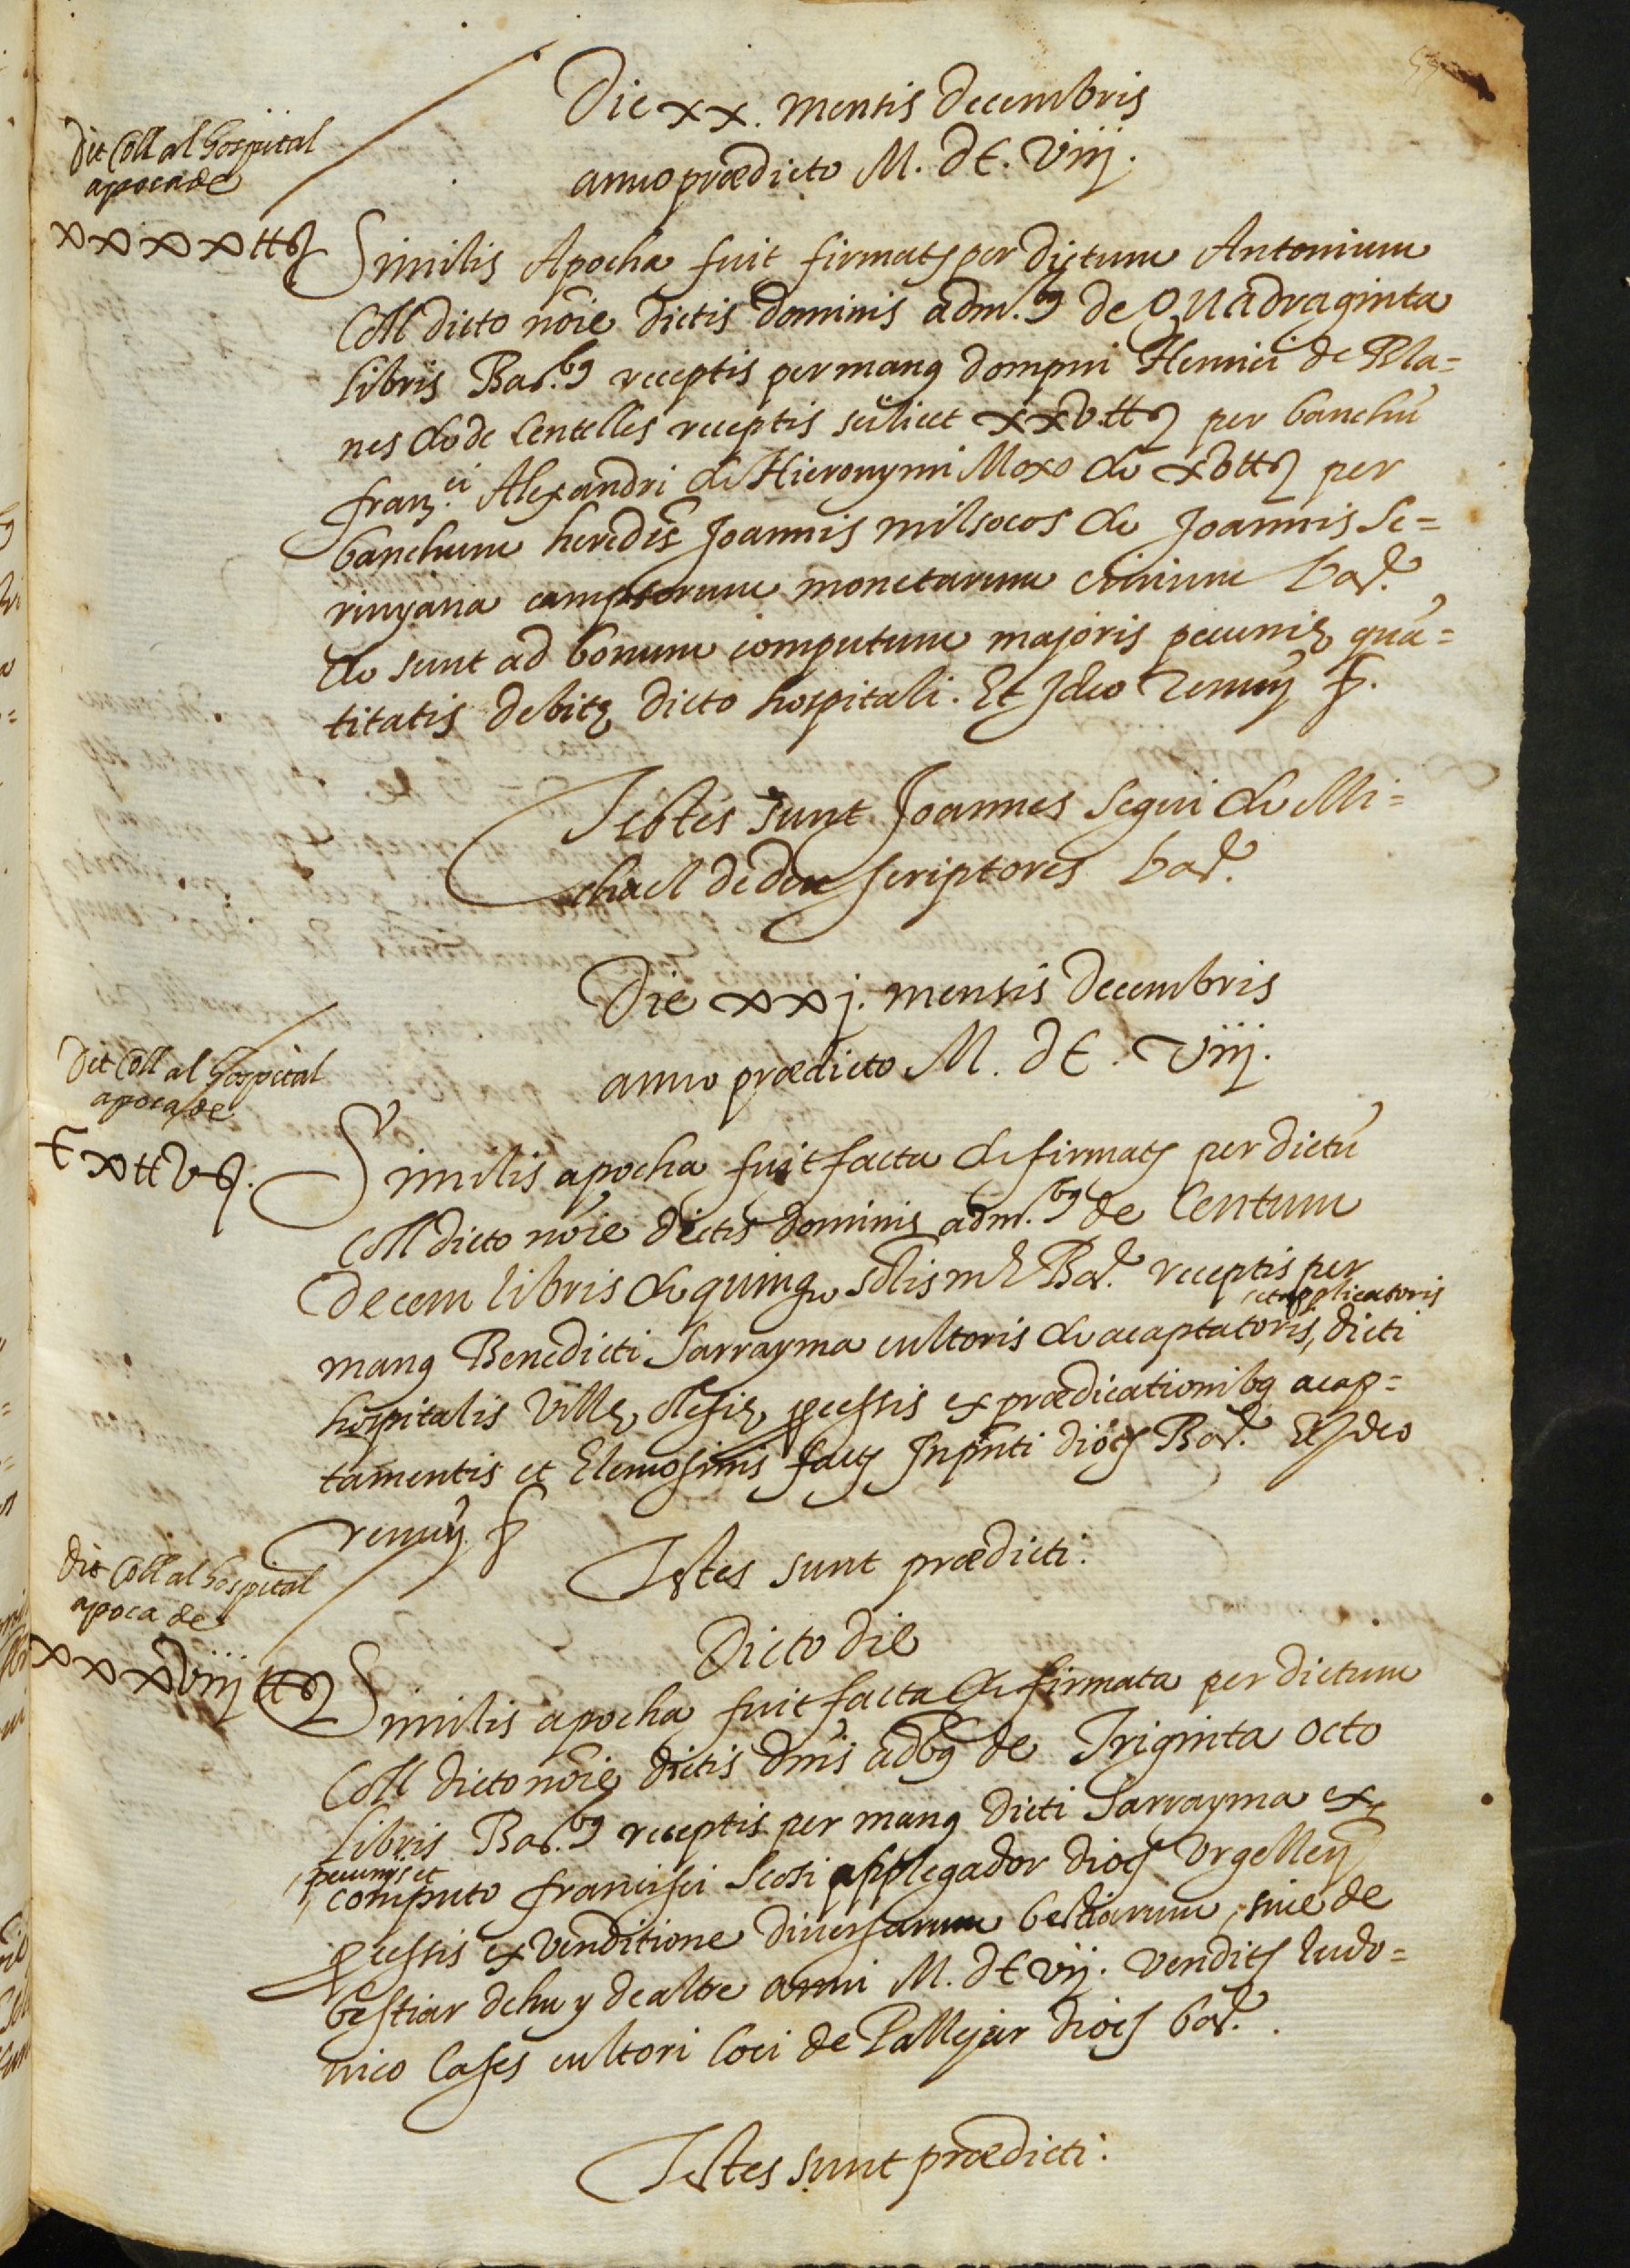 Die xx. mensis Decembris
anno prædicto M. DC. Viij.
Dit Coll al hospital
apoca de
xxxx ℔
Similis Apocha fuit firmata per dictum Antonium
Coll dicto nõie dictis dominis adm.bus de Quadraginta
libris Bar.bus receptis per manus dompni Henrici de Bla=
nes & de Centelles receptis scilicet xxv ℔ per banchũ
Fran.ci Alexandri & Hieronymi Moxo & xv ℔ per
banchum heredis Joannis milsocos & Joannis Se=
rinyana campsorum monetarum civium Bar.
& sunt ad bonum computum majoris pecunię quã=
titatis debitę dicto hospitali. Et Ideo renun
Testes sunt Joannes Segui & Mi=
chael dedeu scriptores Bar.
Die xxj. mensis Decembris
anno prædicto M. DC. Viij.
Dit Coll al hospital
apoca de
Cx ℔ v
Similis apocha fuit facta & firmata per dictũ
Coll dicto nõie dictis dominis adm.bus de Centum
Decem libris & quinque solis m Bar. receptis per
et applicatoris
manus Benedicti Sarrayma cultoris & acaptatoris, dicti
hospitalis Villę olesię pcessis ex prædicationibus acap=
tamentis et Elemosinis factis In pñti dioc Bar. Et Ideo
renun
Testes sunt prædicti:
Dit Coll al hospital
apoca de
xxxviij ℔
Dicto die
Similis apocha fuit facta & firmata per dictum
Coll dicto nõie dictis dñis adbus de Triginta octo
libris Bar.bus receptis per manus dicti Sarrayma ex
pecunijs et
computo Francisci Scosi applegador dioc Urgelleñ
pcessis ex venditione diversarum bestiarum, sive de
bestiar de hu y de altre anni M. DC vij. venditis ludo=
vico Cases cultori loci de Pallejar dioc Bar.
Testes sunt prædicti: